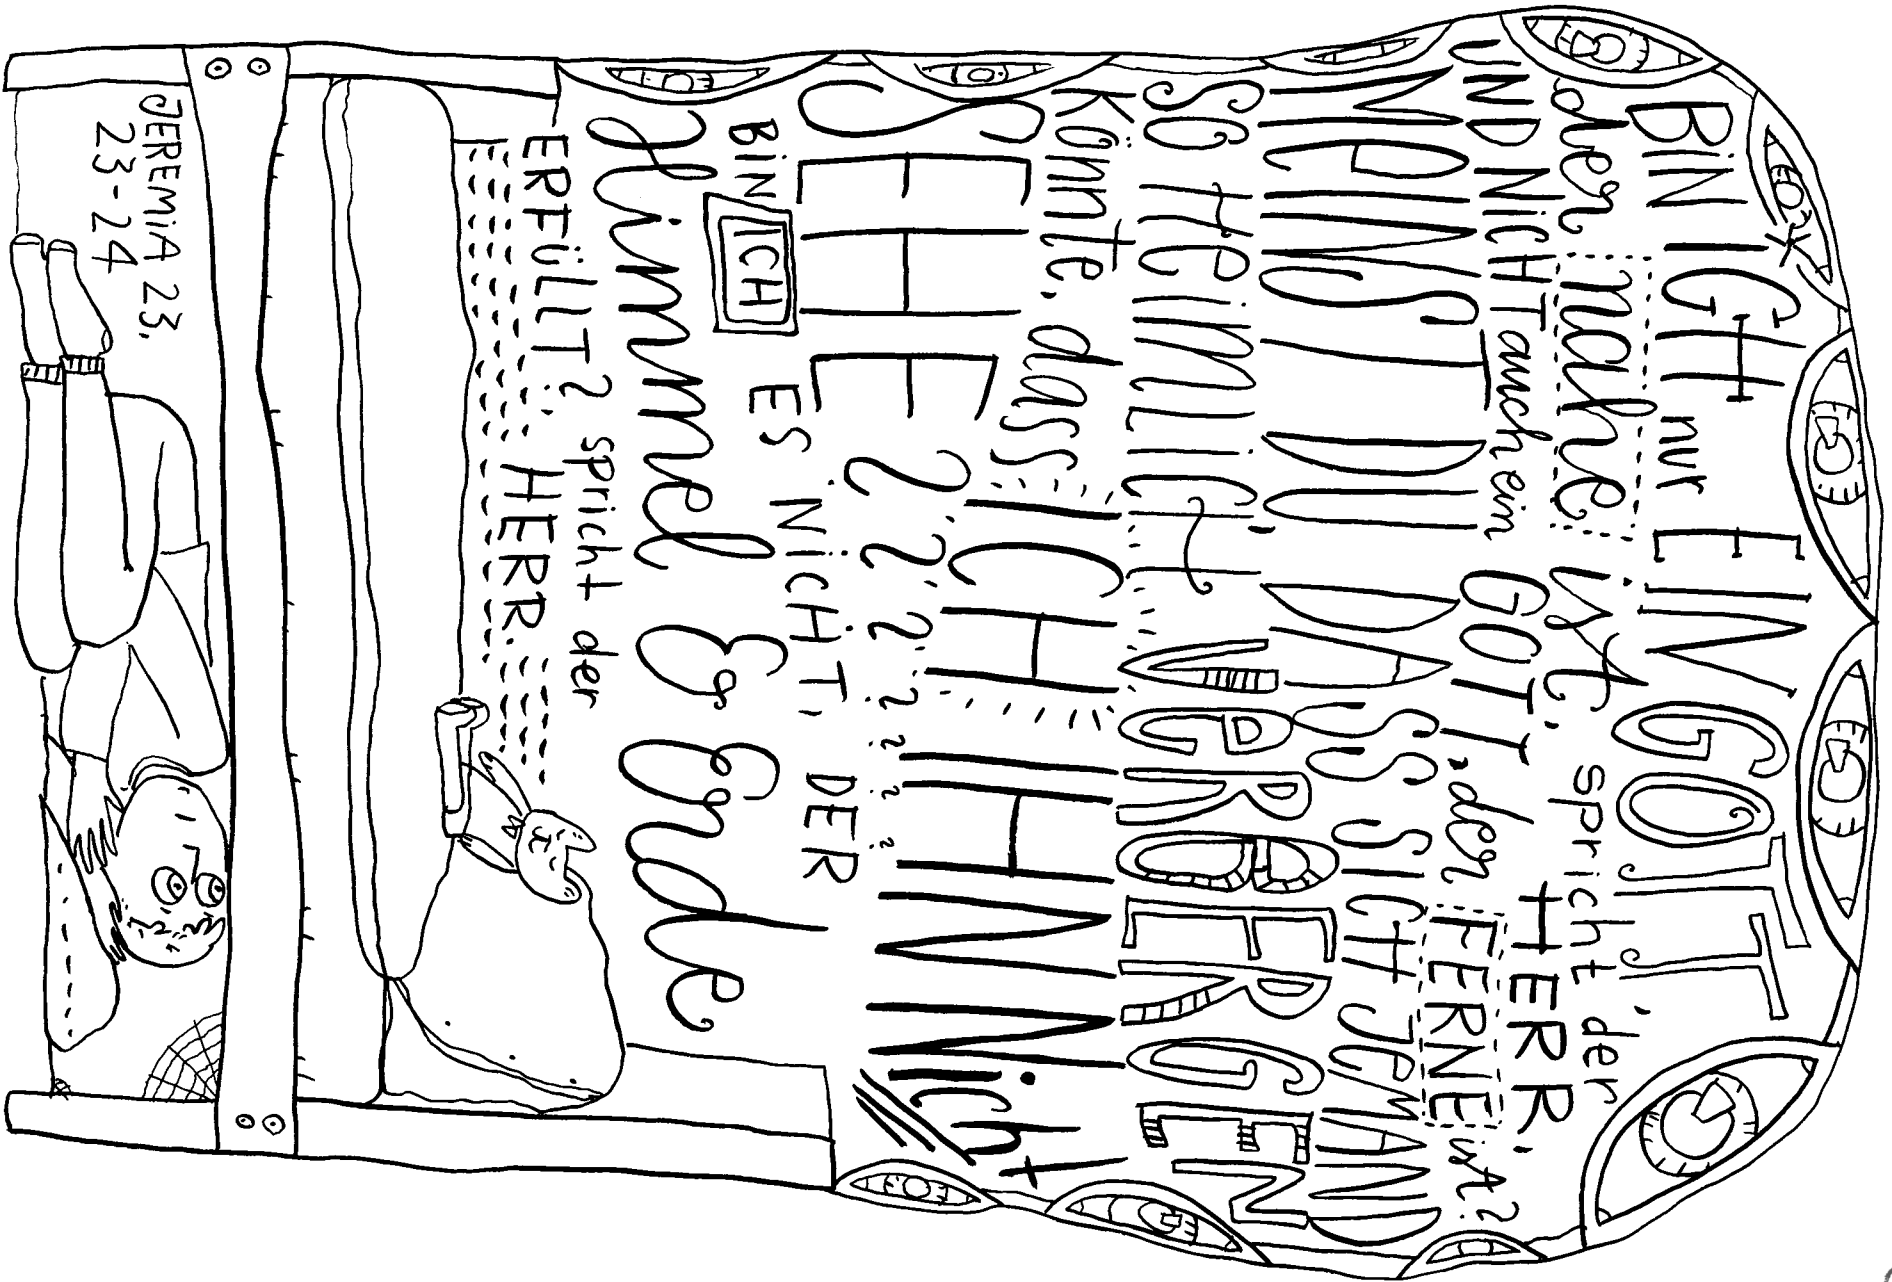 BiN ICH nur EIN GOTT
der nahe ist, spricht der
HERR,
UND NiCHT auch ein GOTT, der FERNE ist?
MEINST DU, DASS SICH JEMAND
SO HeiMLiCH VERBERGEN
Könnte, dass ICH IHN Nicht
SEHE ? ? ? ? ? ? ?
BiN ICH ES NiCHT, DER
Himmel & Erde
ERFÜLLT? spricht der
HERR.
JEREMiA 23.
23-24